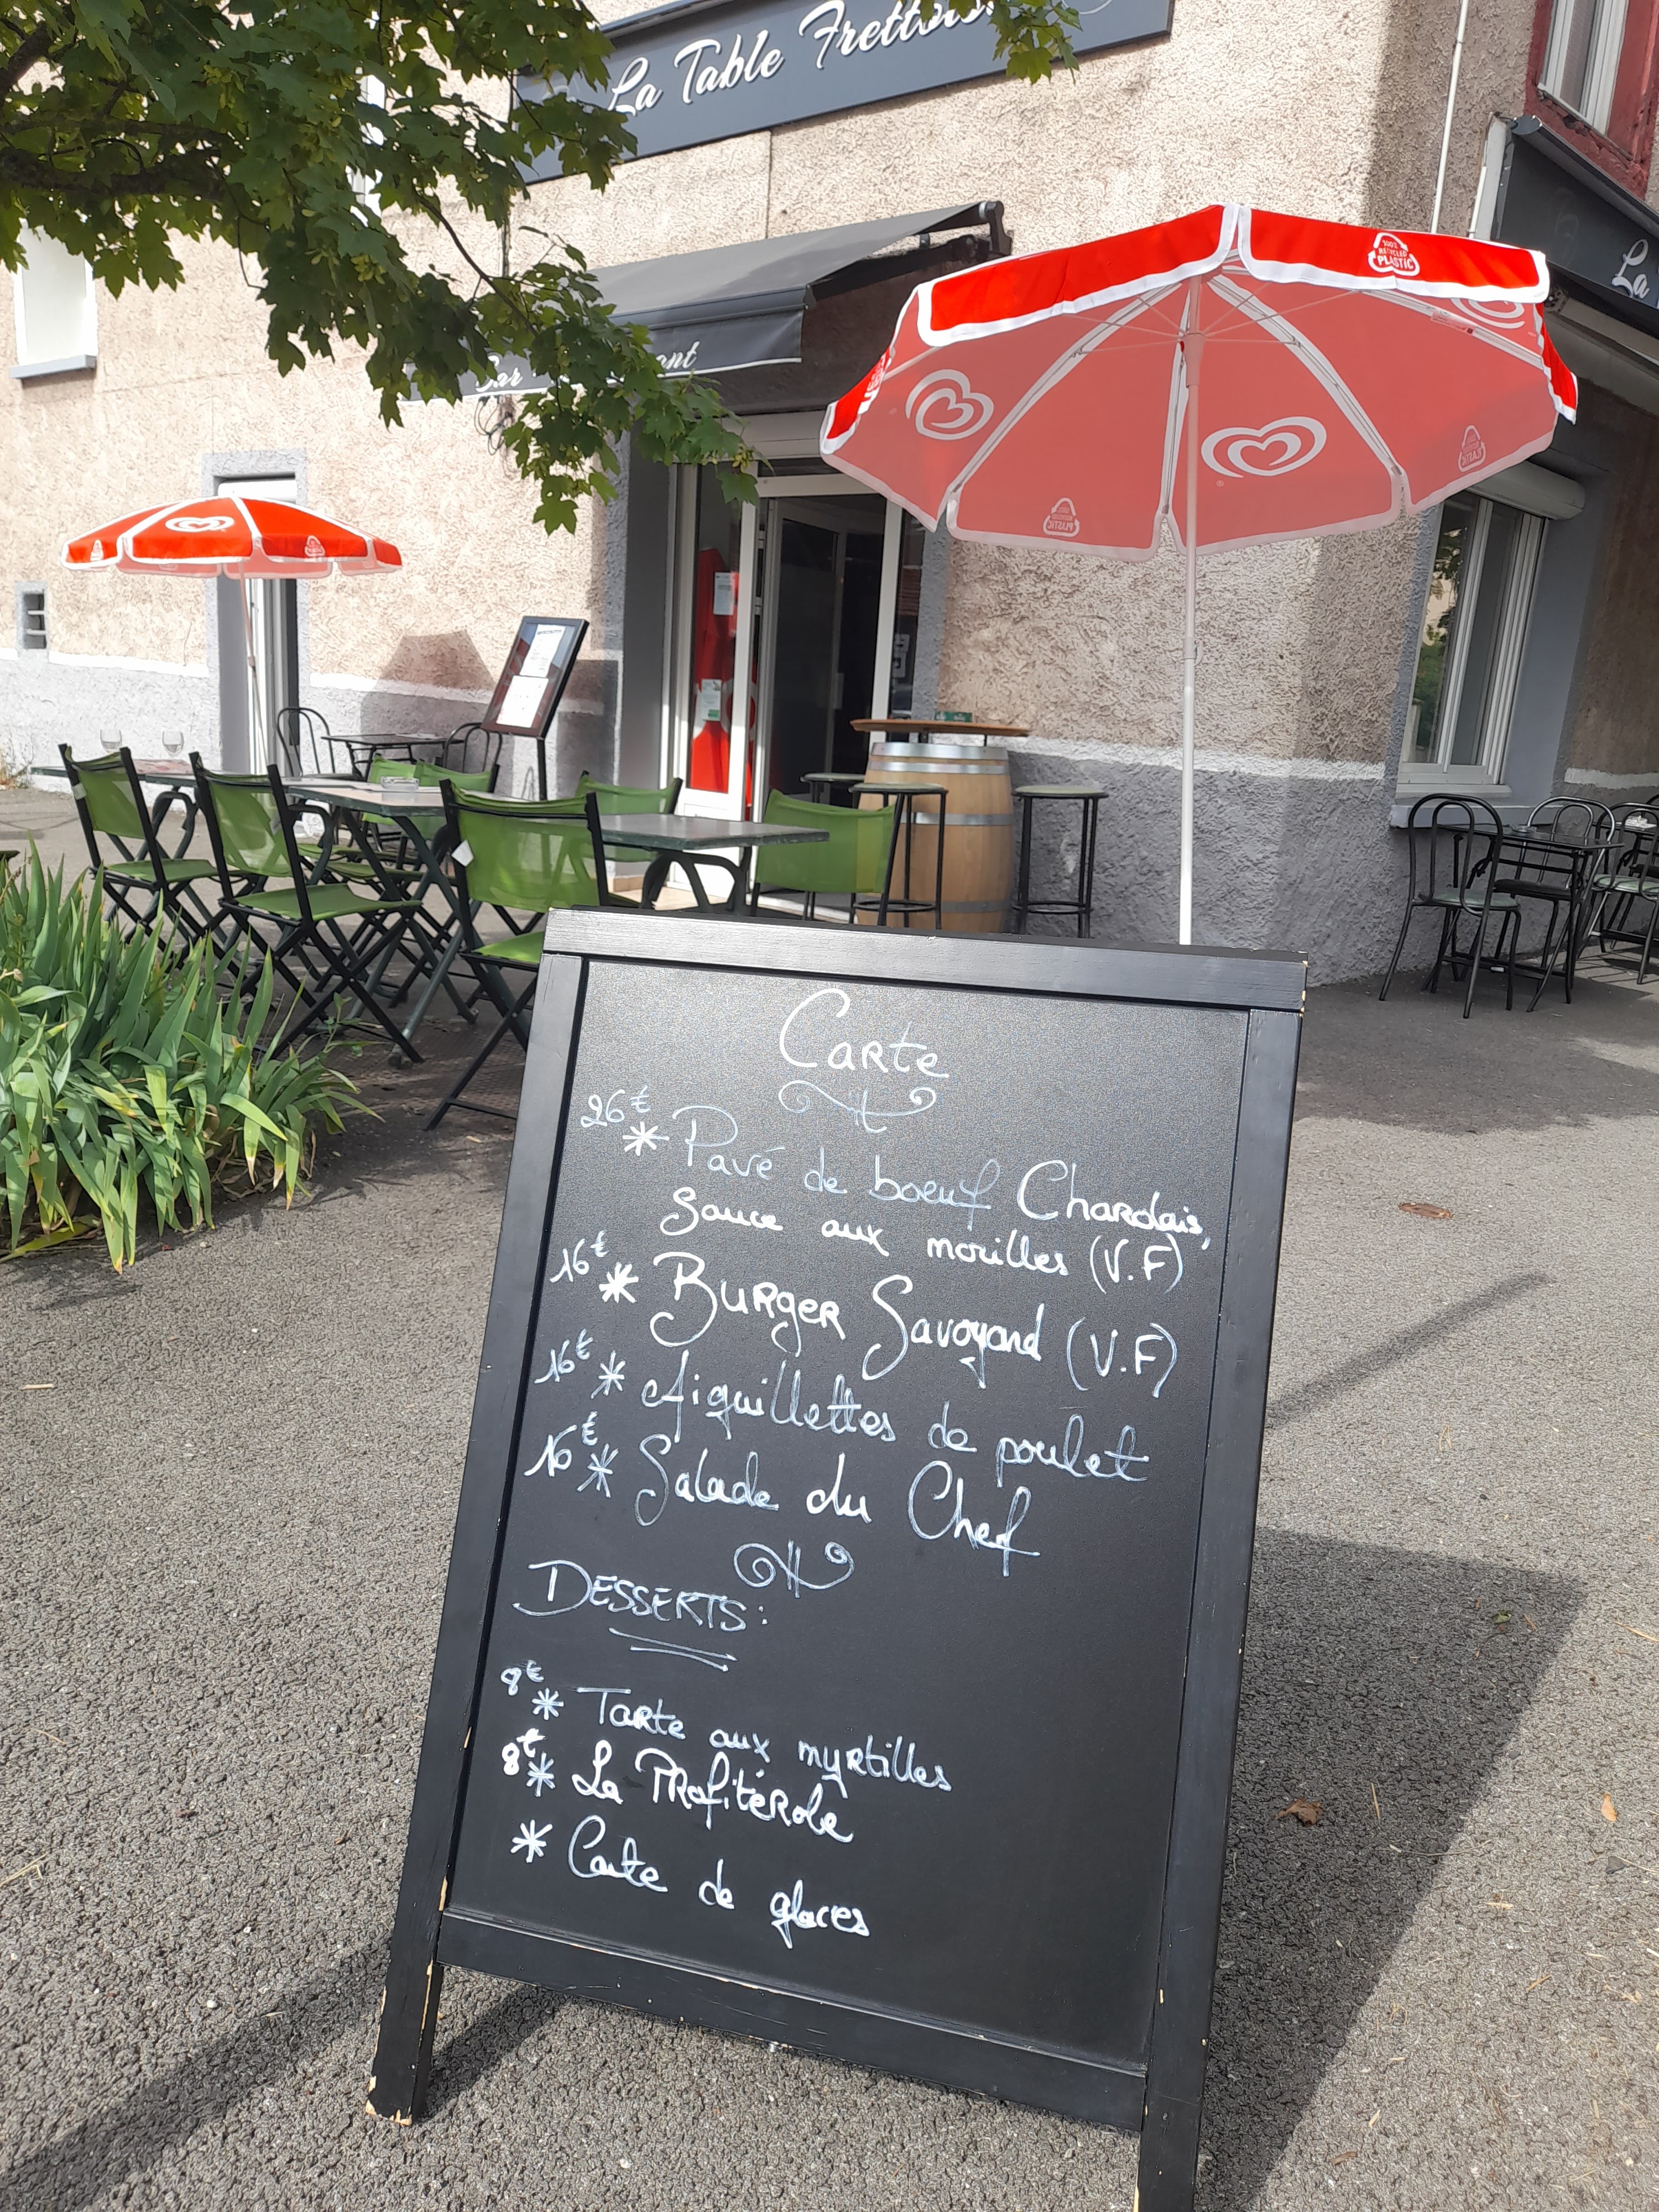 La Table
Bar
La
100%
RECYCLED
PLASTIC
Carte
26€
* Pavé de boeuf Charolais,
Sauce aux morilles (V.F)
16€ * Burger Savoyard (V.F)
16€ * Aiguillettes de poulet
16€ * Salade du Chef
DESSERTS:
8€ * Tarte aux myrtilles
8€ * La Profiterole
* Carte de glaces